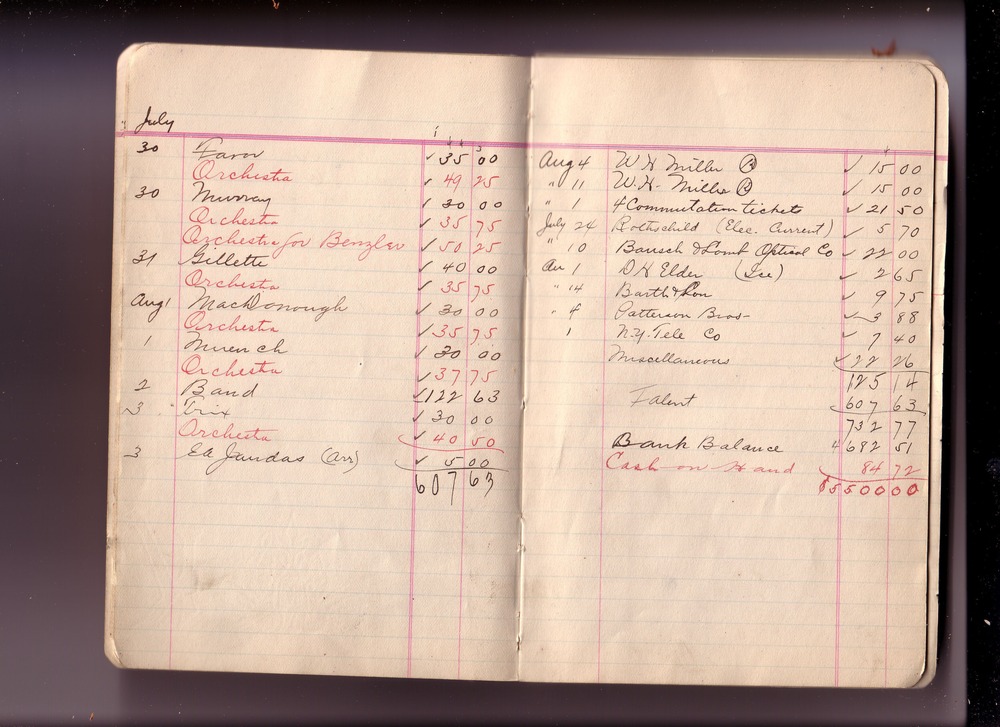 July
30 Favor ✓ 35 00
Orchestra ✓ 49 25
30 Murray ✓ 30 00
Orchestra ✓ 35 75
Orchestra for Benzler ✓ 50 25
31 Gillette ✓ 40 00
Orchestra ✓ 35 75
Aug 1 MacDonough ✓ 30 00
Orchestra ✓ 35 75
1 Muench ✓ 30 00
Orchestra ✓ 37 75
2 Band ✓ 122 63
3 Trix ✓ 30 00
Orchestra ✓ 40 50
3 Ed Jandas (Arr) ✓ 5 00
607 63
Aug 4 W H Miller Ⓡ ✓ 15 00
" 11 W. H. Miller Ⓡ ✓ 15 00
" 1 4 Commutation tickets ✓ 21 50
July 24 Rothschild (Elec. Current) ✓ 5 70
" 10 Bausch & Lomb Optical Co ✓ 22 00
Au 1 D H Elder (Ice) ✓ 2 65
" 14 Barth & Son ✓ 9 75
" 4 Patterson Bros ✓ 3 88
1 N.Y. Tele Co ✓ 7 40
Miscellaneous ✓ 22 26
125 14
Talent 607 63
732 77
Bank Balance 4682 51
Cash on Hand 84 72
$5500 00